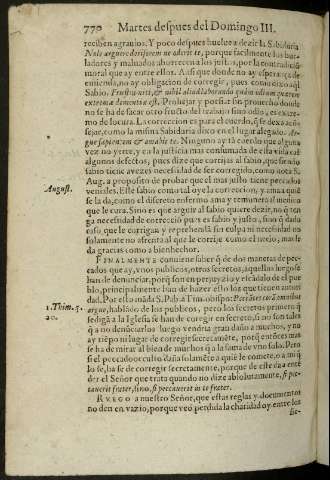 770 Martes despues del Domingo III.
reciben agrauios. Y poco despues buelue a dezir la Sabiduria
Noli arguere derisorem ne oderit te, porque facilmente los bur-
ladores y maluados aborrecen a los justos, por la contradiciō
moral que ay entre ellos. Assi que donde no ay esperança de
emienda, no ay obligacion de corregir, pues como dixo aquel
Sabio. Frustra niti, & nihil aliud laborando quàm odium quærere
extremæ dementiæ est. Prohijar y porfiar sin prouecho donde
no se ha de sacar otro fructo del trabajo sino odio, es extre-
mo de locura. La correccion es para el cuerdo, q̄ se dexa acōse-
sejar, como la misma Sabiduria dixo en el lugar alegado. Ar-
gue sapientem & amabit te. Ninguno ay tā cuerdo que alguna
vez no yerre, y en la justicia mas consumada de esta vida cabē
algunos defectos, pues dize que corrijas al sabio, que siendo
sabio tiene a vezes necesidad de ser corregido, como nota S.
August. Aug. a proposito de probar que el mas justo tiene peccados
veniales. Este sabio como tal oye la correccion, y ama a quiē
se la da, como el discreto enfermo ama y remunera al medico
que le cura. Sino es que arguir al sabio quiere dezir, no q̄ ten
ga necessidad de correcciō pues es sabio y justo, sino q̄ dado
caso, que le corrigan y reprehendā sin culpa ni necesidad no
solamente no afrenta al que le corrige como el necio, mas le
da gracias como a bienhechor.
FINALMENTE conuiene saber q̄ de dos maneras de pec-
cados que ay, vnos publicos, otros secretos, aquellos luego se
han de denunciar, porq̄ son en perjuyzio y escādalo de el pue
blo, principalmente han de hazer esto los que tienen autori
dad. Por esso māda S. Pab. a Tim. obispo: Peccātes corā omnibus
1. Thim. 5. argue, hablādo de los publicos, pero los secretos primero q̄
20. se digā a la Iglesia se han de corregir en secreto, si no son tales
q̄ a no denūciarlos luego vendria gran daño a muchos, y no
ay tiēpo ni lugar de corregir secretamēte, porq̄ entōces mas
se ha de mirar al bien de muchos q̄ a la fama de vno solo. Pero
si el peccado es oculto daña solamēte a quiē le comete, o a mi q̄
lo se, ha se de corregir secretamente, porque de este da a entē
der el Señor que trata quando no dize absolutamente, si pec-
cauerit frater, sino, si peccauerit in te frater.
RVEGO a nuestro Señor, que estas reglas y documentos
no den en vazio, porque veo perdida la charidad oy entre los
fie-